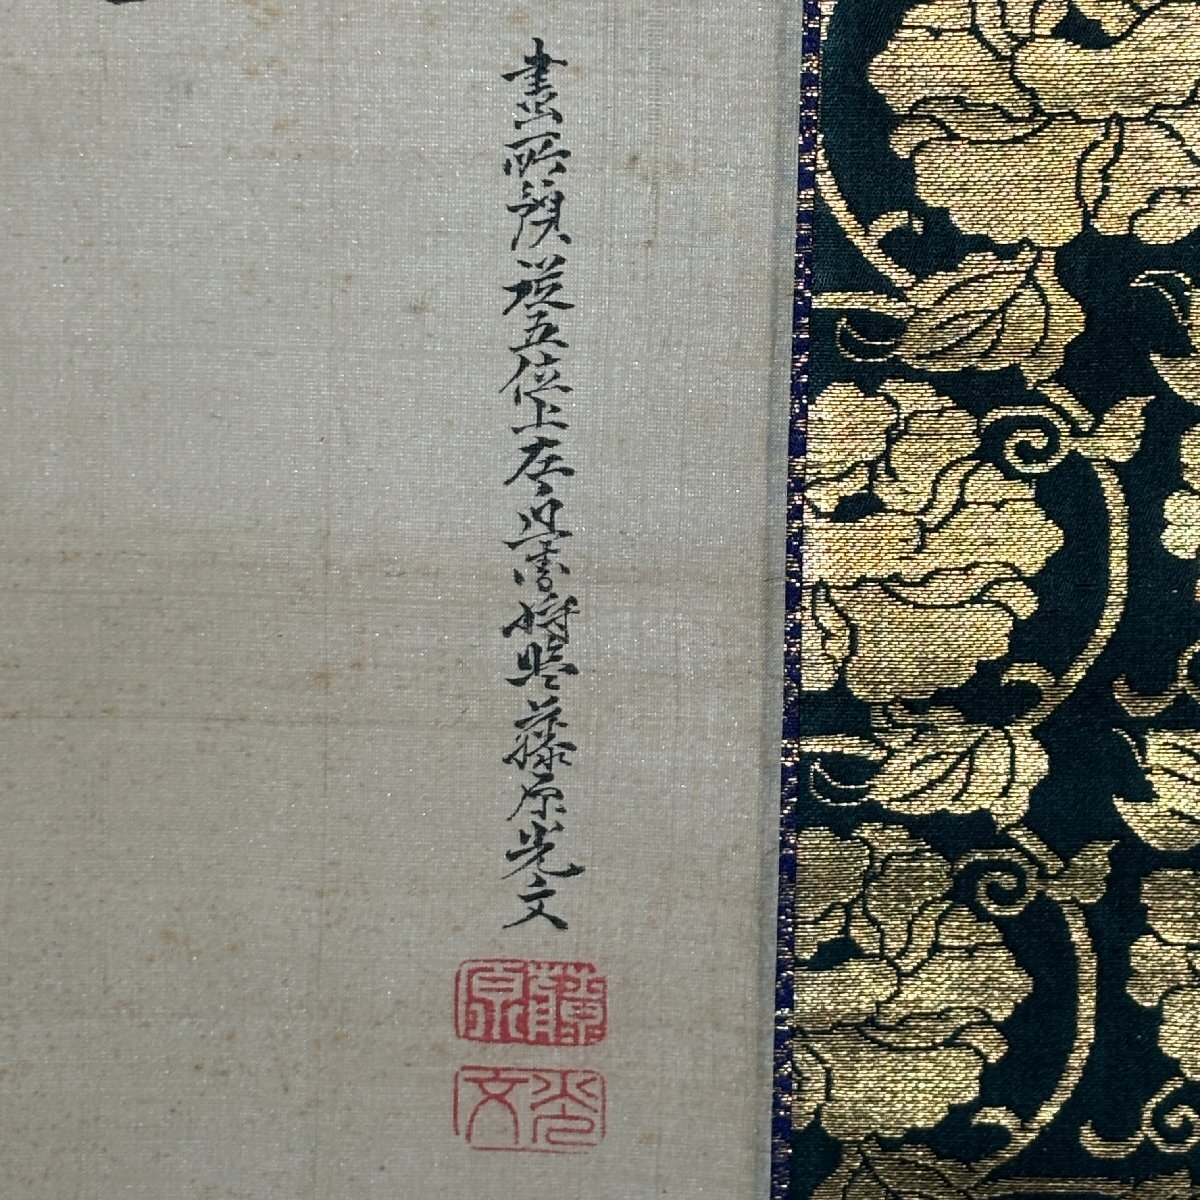 畫所預従五位上左近衛将監藤原光文
藤原
光文